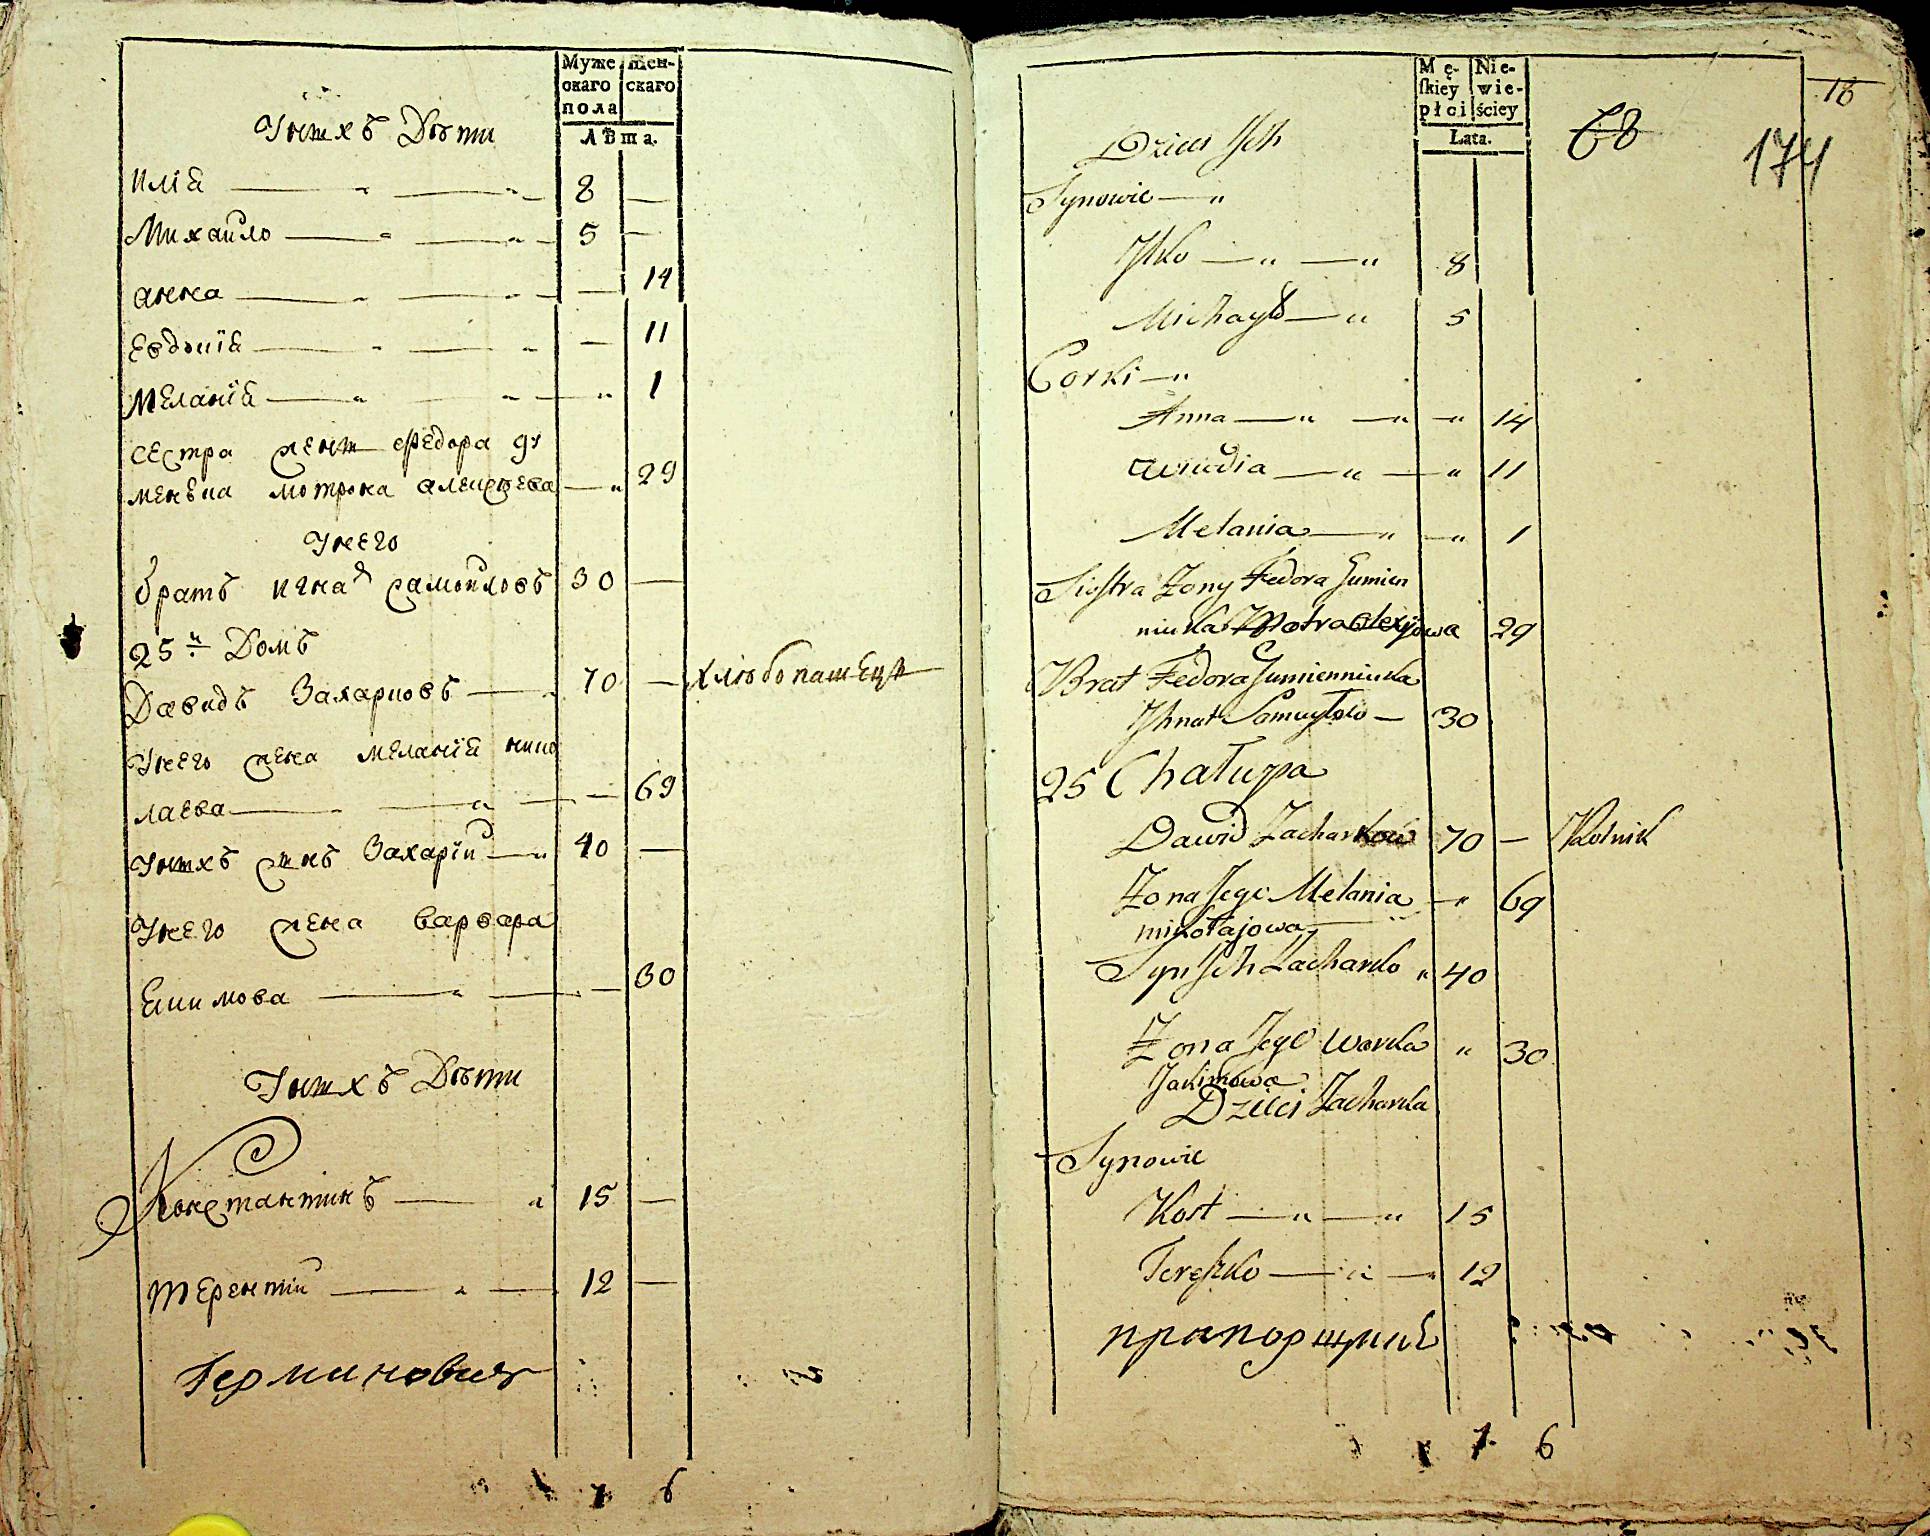 Муже
скаго
пола
Жен-
скаго
Лѣта.
Унихъ Дѣти
илiа 8 —
Михайло 5 —
анна — 14
Евдокiа — 11
Меланiа — 1
сестра жены Федора гу
менъка мотрона алексѣева — 29
Унего
братъ игнат самойловъ 30 —
25й Домъ
Давидъ Захарковъ 70 — хлѣбопашецъ
Унего жена меланiа нико
лаева — 69
Унихъ сынъ Захарiй 40 —
Унего жена варвара
Екимова — 30
Унихъ Дѣти
Константинъ 15 —
терентiй 12 —
7 6
Mę-
skiey
płci
Nie-
wie-
ściey
Lata.
16
68
174
Dzieci Jch
Synowie
Jlko 8
Michayło 5
Corki
Anna 14
awudia 11
Melania 1
Siostra Zony Fedora Humien
niuka Motra alexijowa 29
Brat Fedora Humienniuka
Jhnat Samuyłow 30
25 Chałupa
Dawid Zacharków 70 — Rolnik
Zona Jego Melania 69
mikołajowa
Syn Jch Zacharko 40
Zona Jego Warka 30
Jakimowa
Dzieci Zacharka
Synowie
Kost 15
Tereszko 12
прапорщикъ
7 6